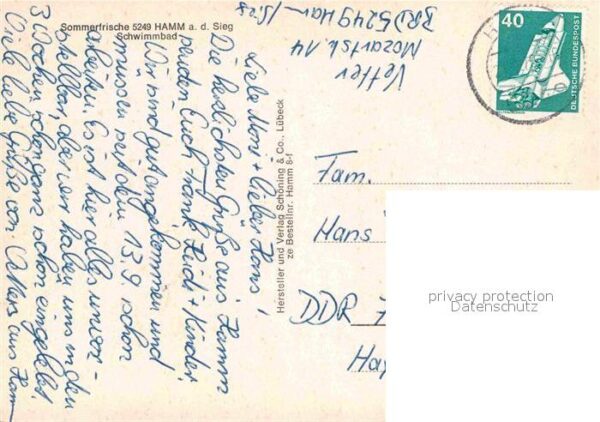 Sommerfrische 5249 HAMM a. d. Sieg
Schwimmbad
Vetter
Mozartstr. 14
BRD 5249 Ham / Sieg
40
DEUTSCHE BUNDESPOST
Liebe Mori + lieber Hans!
Die herzlichsten Grüße aus Hamm
senden Euch Frank, Heidi + Kinder.
Wir sind gut angekommen und
müssen seit dem 13.9. schon
arbeiten. Es ist hier alles unvor-
stellbar, aber wir haben uns in den
3 Wochen schon ganz schön eingelebt.
Viele liebe Grüße von Vetters aus Ham
Hersteller und Verlag Schöning & Co., Lübeck
ze Bestellnr. Hamm 8-f
Fam.
Hans
DDR
Hay
privacy protection
Datenschutz